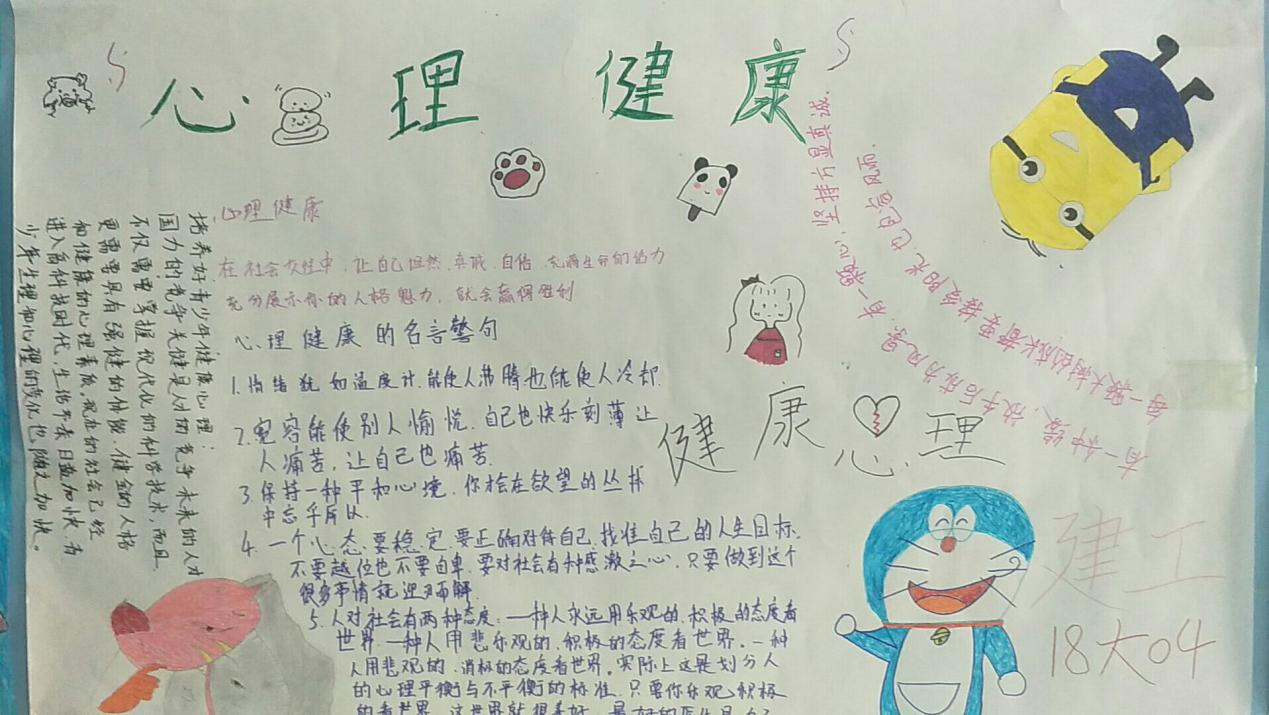 心理健康
培养好青少年健康心理:
国力的竞争关键是人才的竞争未来的人才
不仅需要掌握现代化的科学技术,而且
更需要具有强健的体魄、健全的人格
和健康的心理素质,现在的社会已经
进入高科技时代、生活节奏日益加快、青
少年生理和心理的变化也随之加快。
心理健康
在社会交往中,让自己坦然、真诚、自信、充满生命的活力
充分展示你的人格魅力,就会赢得胜利
心理健康的名言警句
1.情绪犹如温度计,能使人沸腾也能使人冷却.
2.宽容能使别人愉悦,自己也快乐刻薄让
人痛苦,让自己也痛苦.
3.保持一种平和心境,你才会在欲望的丛林
中忘乎所以.
4.一个心态要稳定,要正确对待自己,找准自己的人生目标.
不要越位也不要自卑.要对社会有种感激之心,只要做到这个
很多事情就迎刃而解.
5.人对社会有两种态度:一种人永远用乐观的,积极的态度看
世界.一种人用悲乐观的,积极的态度看世界.一种
人用悲观的,消极的态度看世界。实际上这是划分人
的心理平衡与不平衡的标准.只要你乐观积极
的看世界
有一种爱,放手后成为风景.有一颗心,坚持方显真诚.
每一颗大树的成长都要接受阳光,也包含风雨.
健康心理
建工
18大04